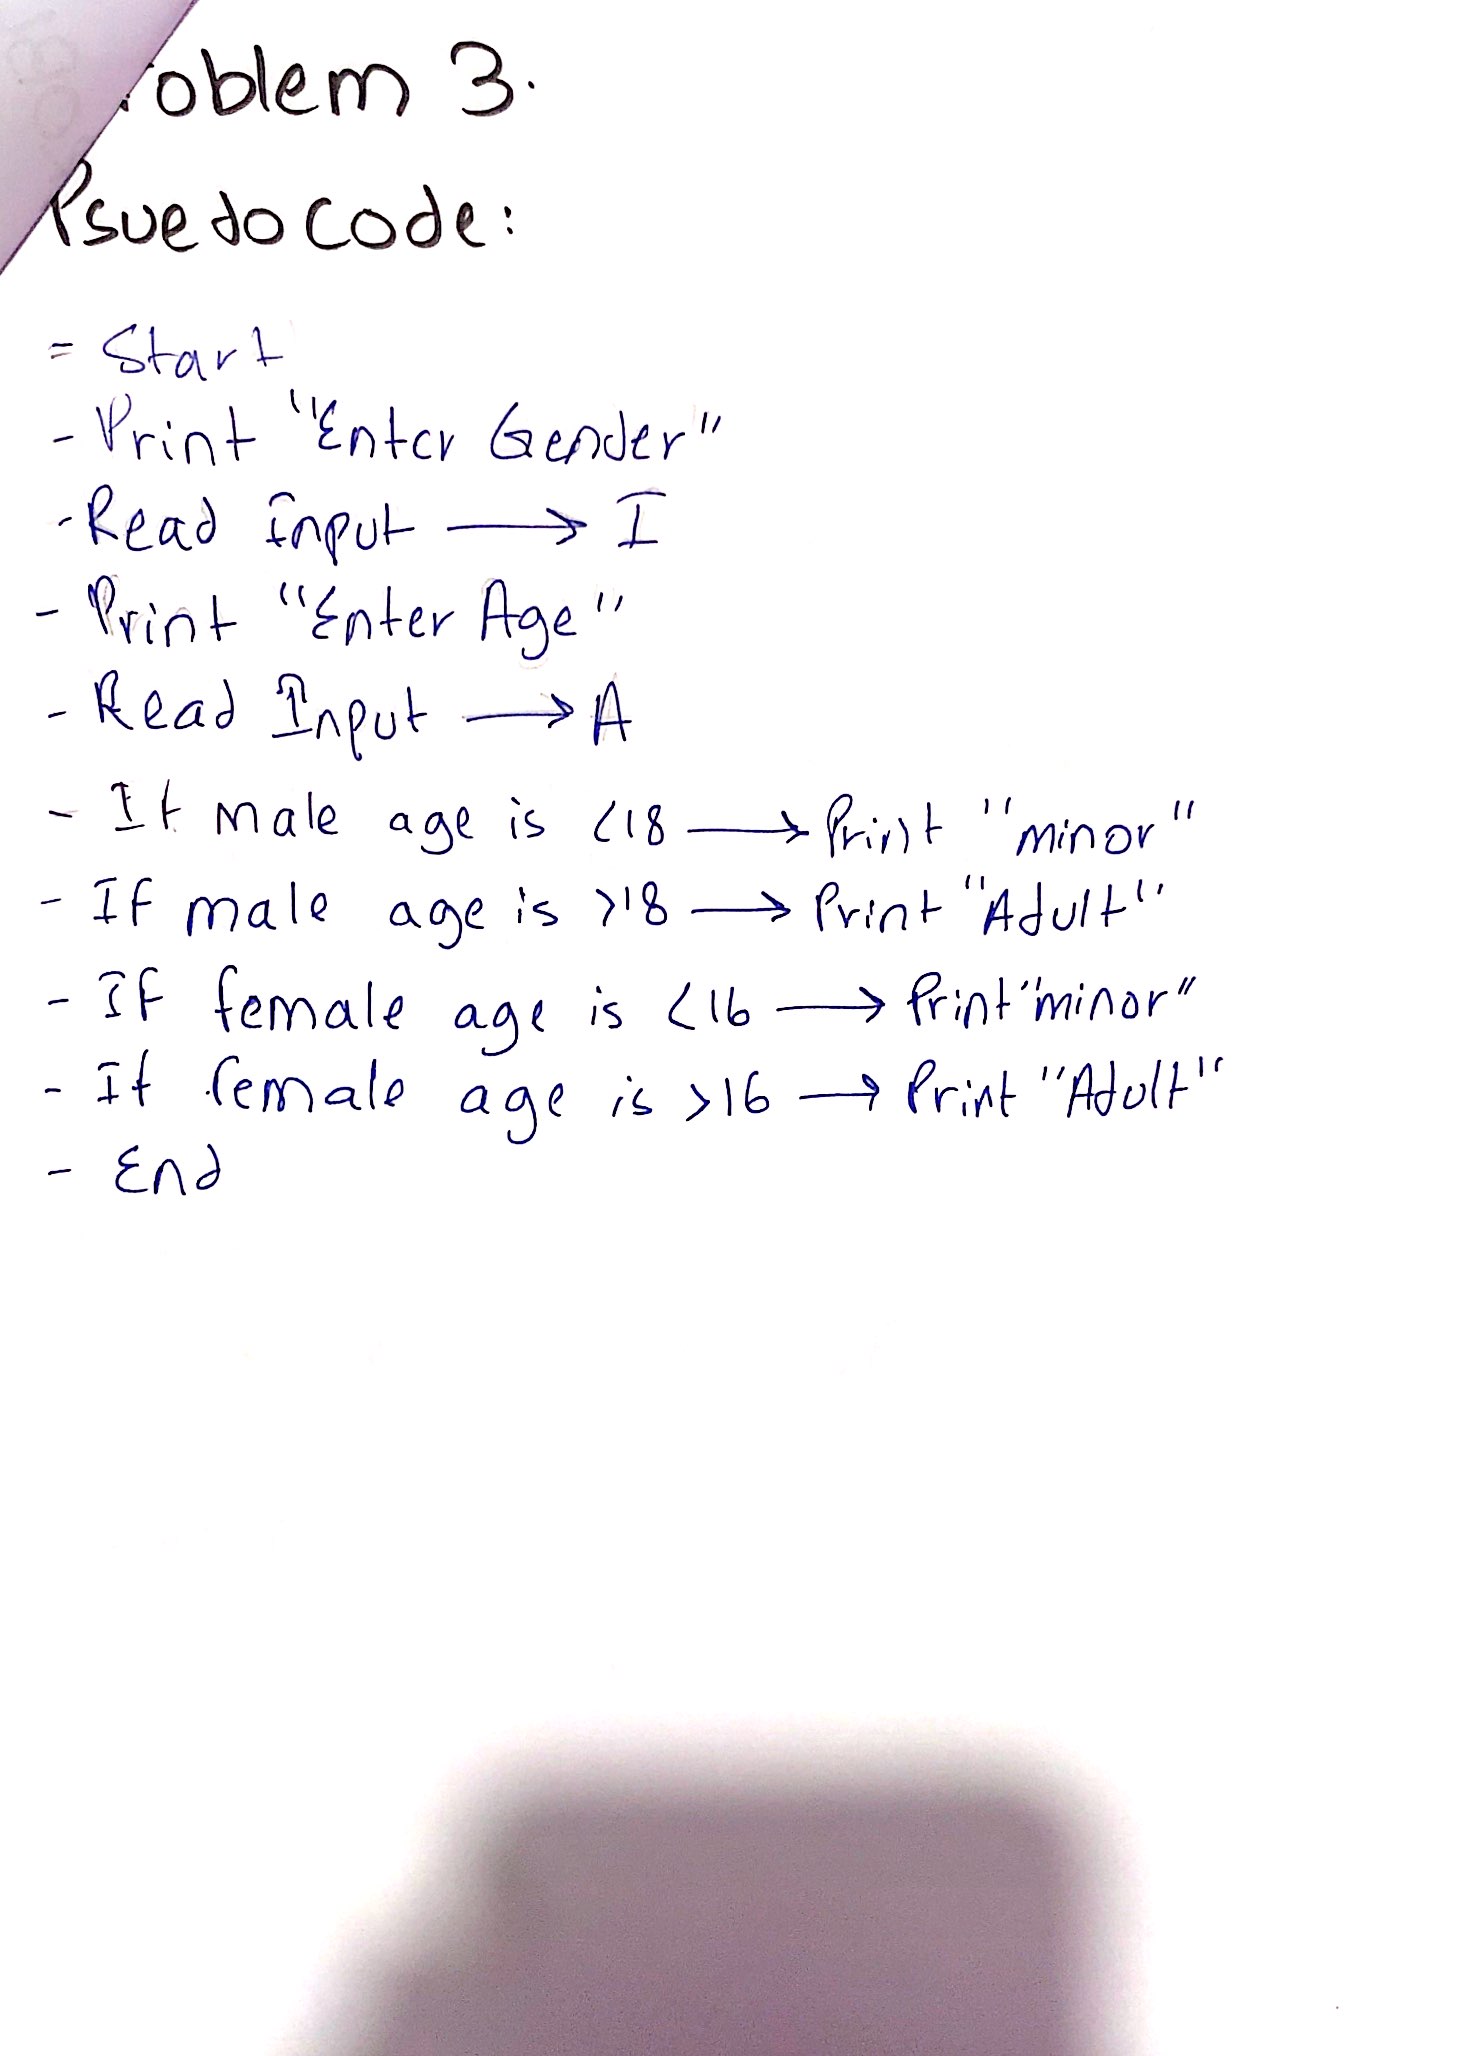 roblem 3.
Psuedo code:
= Start
- Print "Enter Gender"
- Read input → I
- Print "Enter Age"
- Read Input → A
- If male age is <18 → Print "minor"
- If male age is >18 → Print "Adult"
- If female age is <16 → Print "minor"
- If female age is >16 → Print "Adult"
- End